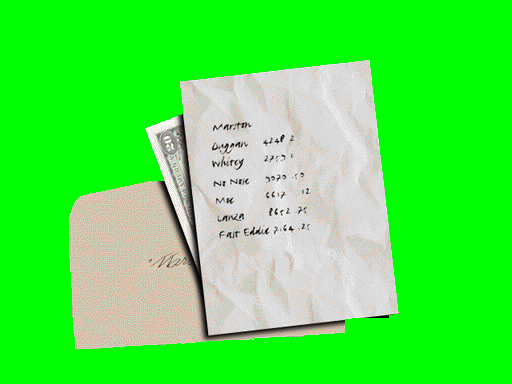 Marston
Duggan 4248 2
Whitey 2753 1
No Nose 9070 .50
Moe 6617 12
Lanza 8652 .75
Fast Eddie 7164 .25
50